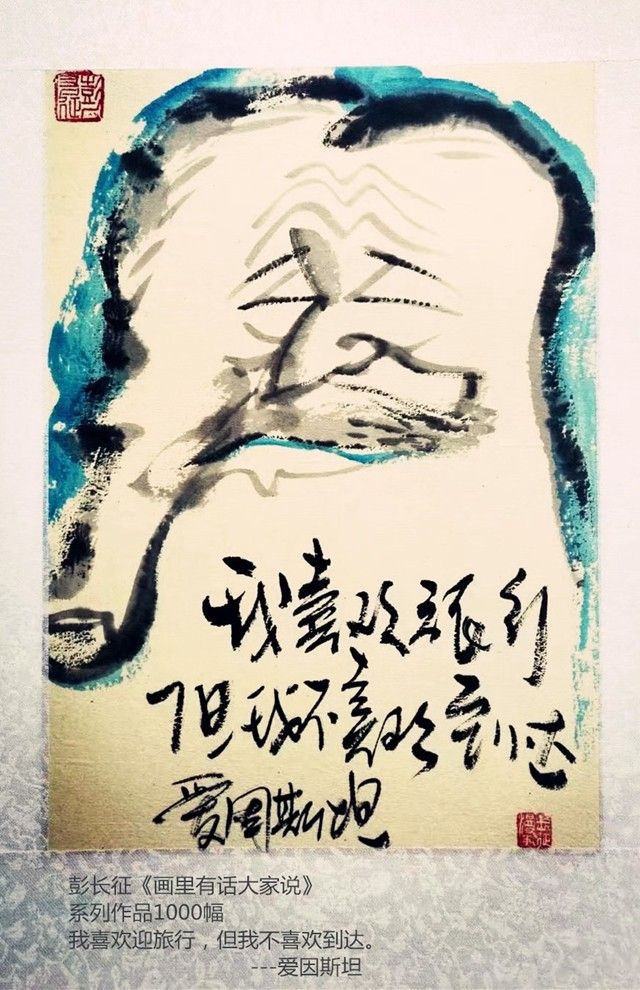 我喜欢旅行
但我不喜欢到达
爱因斯坦
彭长征《画里有话大家说》
系列作品1000幅
我喜欢迎旅行，但我不喜欢到达。
---爱因斯坦